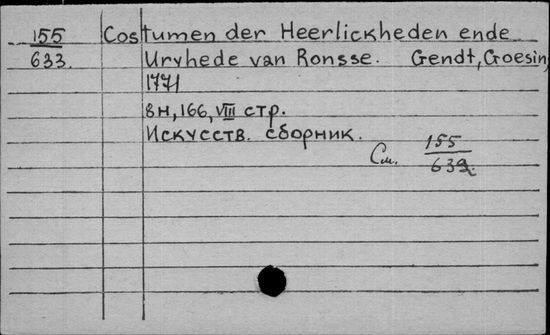 155 Costumen der Heerlickheden ende
633. Uryhede van Ronsse. Gendt, Goesin,
1771
8н, 166, VIII стр.
Искусств. сборник.
См. 155
632.